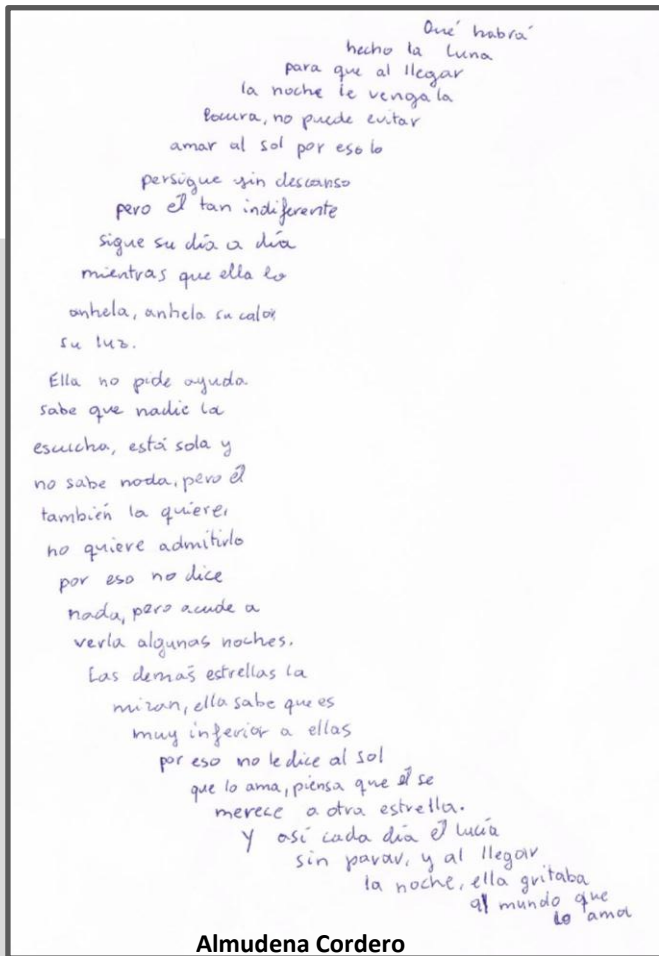 Qué habrá
hecho la luna
para que al llegar
la noche le venga la
locura, no puede evitar
amar al sol por eso lo
persigue sin descanso
pero él tan indiferente
sigue su día a día
mientras que ella lo
anhela, anhela su calor,
su luz.
Ella no pide ayuda
sabe que nadie la
escucha, está sola y
no sabe nada, pero él
también la quiere,
no quiere admitirlo
por eso no dice
nada, pero acude a
verla algunas noches.
Las demás estrellas la
miran, ella sabe que es
muy inferior a ellas
por eso no le dice al sol
que lo ama, piensa que él se
merece a otra estrella.
Y así cada día él lucía
sin parar, y al llegar
la noche, ella gritaba
al mundo que
lo ama
Almudena Cordero